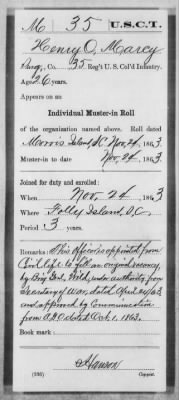 M 35 U.S.C.T.
Henry O. Marcy
Surg, Co. 35 Reg't U.S. Col'd Infantry.
Age 26 years.
Appears on an
Individual Muster-in Roll
of the organization named above. Roll dated
Morris Island, S.C. Nov. 24, 1863
Muster-in to date Nov. 24, 1863
Joined for duty and enrolled:
When Nov. 24, 1863
Where Folly Island, S.C.
Period 3 years.
Remarks: This officer is appointed from
Civil Life to fill an original vacancy,
by Brig. Genl. Wild, under authority from
Secretary of War, dated April 24, 63
and approved by Commission
from A.G.O. dated Oct. 1, 1863.
Book mark:
(336) Copyist.